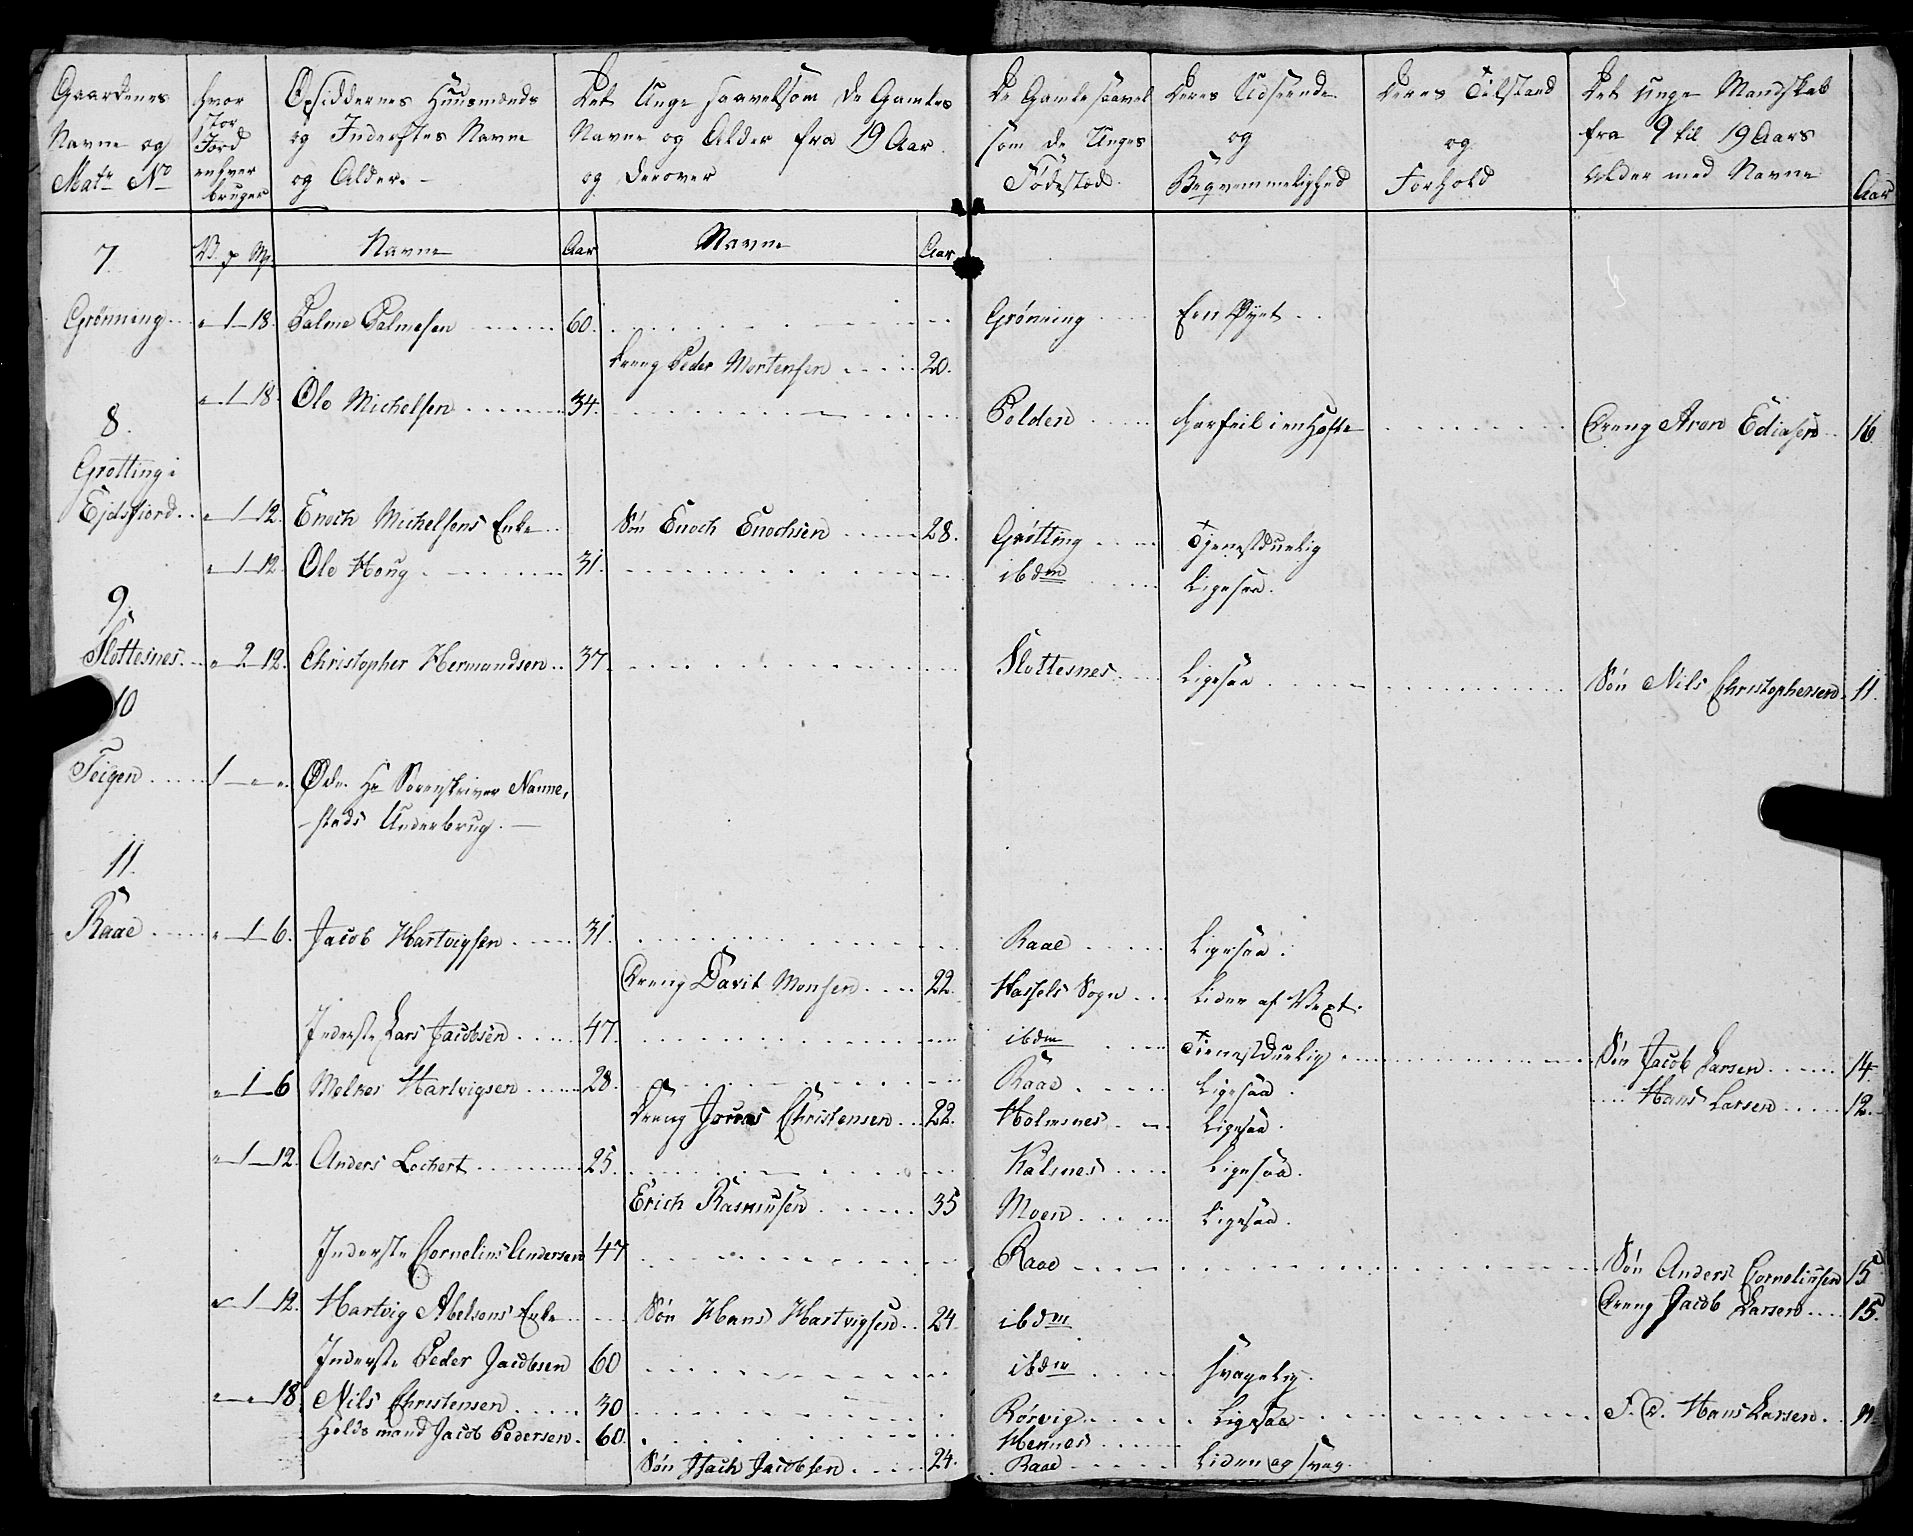 Gaardenes Navne og Matr No | hvor stor Jord enhver bruger | Opsiddernes Huusmænds og Inderstes Navne og Alder. | Det Unge saavelsom de Gamles Navne og Alder fra 19 Aar og derover | De Gamle saavel som de Unges Fødested | Deres Udseende og Beqvemmelighed | Deres Tilstand og Forhold | Det unge Mandskab fra 9 til 19 Aars Alder med Navne | Aar
7. | V. p Mk. | Navne | Aar | Navne | Aar
Grønning | " 1 18. | Palme Palmesen | 60. | Grønning | Een Øyet
Dreng Peder Mortensen | 20.
" 1 18. | Ole Michelsen | 34. | Polden | har feil i en Hofte | Dreng Aron Ediasen | 16
8.
Grøtting i
Ejdsfiord | " 1 12. | Enoch Michelsens Enke | Søn Enoch Enochsen | 28. | Grøtting | Tjenestduelig
" 1 12. | Ole Houg | 31. | ibdm | Ligesaa.
9.
Slottesnes | " 2 12. | Christopher Hermandsen | 37. | Slottesnes | Ligesaa | Søn Nils Christophersen | 11.
10
Teigen | 1 " " | Øde. Hr Sorenskriver Nanne-
stads Underbrug.
11.
Raae | " 1 6. | Jacob Hartvigsen | 31. | Raae | Ligesaa.
Dreng Davit Monsen | 22. | Hassels Sogn | Liden af Vext.
Inderste Lars Jacobsen | 47. | ibdm | Tienestduelig | Søn Jacob Larsen | 14.
" 1 6 | Melker Hartvigsen | 28. | Raae | Ligesaa. | Hans Larsen | 12.
Dreng Jonas Christensen | 22. | Holmsnes | Ligesaa.
" 1 12. | Anders Lochert | 25. | Kalsnes | Ligesaa.
Erich Rasmusen | 35 | Moen | Ligesaa.
Inderste Cornelius Andersen | 47 | Raae | Søn Anders Corneliusen | 15
1 12. | Hartvig Abelsens Enke | Søn Hans Hartvigsen | 24 | ibdm | Dreng Jacob Larsen | 15.
Inderste Peder Jacobsen | 60 | ibdm | svagelig.
" " 18. | Nils Christensen | 30 | Rørvig | Ligesaa | Hans Larsen
Holdsmand Jacob Pedersen | 60. | Hennes
Søn Isach Jacobsen | 24. | Raae | Liden og svag.